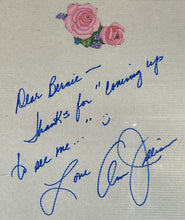 Dear Bernie —
Thanks for "coming up
to see me..."
Love Ann Jillian